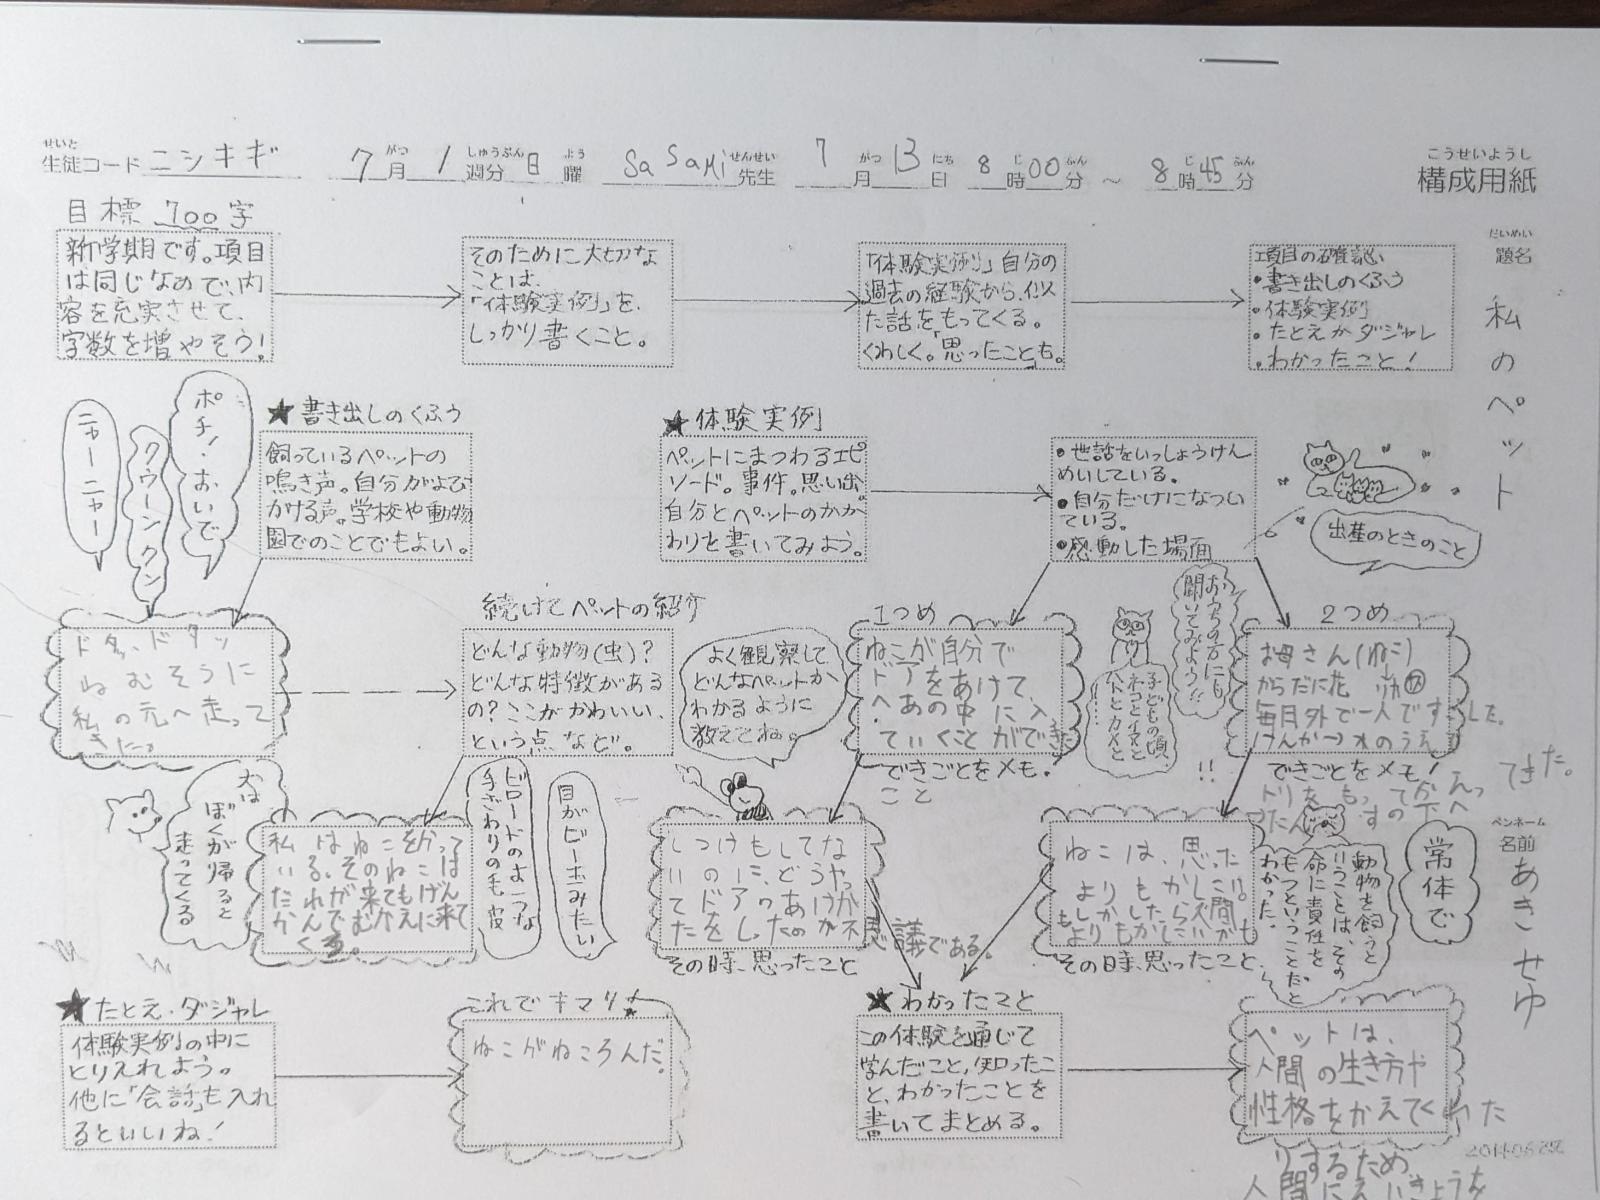 せいと
生徒コード ニシキギ 7月 1週分 日曜 SaSaMi先生 7月13日 8時00分 ～ 8時45分
がつ しゅうぶん よう せんせい がつ にち じ ふん じ ふん
こうせいようし
構成用紙
目標 700字
新学期です。項目
は同じなので、内
容を充実させて、
字数を増やそう!
そのために大切な
ことは、
「体験実例」を、
しっかり書くこと。
「体験実例」自分の
過去の経験から、似
た話をもってくる。
くわしく。「思ったことも。
項目の確認
・書き出しのくふう
・体験実例
・たとえかダジャレ
・わかったこと!
だいめい
題名
私のペット
ニャーニャー
クウーンクン
ポチ!おいで
★書き出しのくふう
飼っているペットの
鳴き声。自分がよび
かける声。学校や動物
園でのことでもよい。
★体験実例
ペットにまつわるエピ
ソード。事件。思い出。
自分とペットのかか
わりを書いてみよう。
・世話をいっしょうけん
めいしている。
・自分だけになつい
ている。
・感動した場面
出産のときのこと
ドタッ、ドタッ
ねむそうに
私の元へ走って
きた。
続けてペットの紹介
どんな動物(虫)?
どんな特徴がある
の?ここがかわいい、
という点など。
よく観察して
どんなペットか
わかるように
教えてね。
1つめ
ねこが自分で
ドアをあけて、
へあの中に入
ていくことができた
できごとをメモ。
こと
おうちの方にも
聞いてみよう!!
子どもの頃
ネコとイヌと
ハトとカメと
……
2つめ
お母さん(ねこ)
からだに花
毎日外で一人です した。
けんかつ
できごとをメモ!
てきた。
犬は
ぼくが帰ると
走ってくる
私はねこをかって
いる。そのねこは
だれが来てもげん
かんでむかえに来て
くる。
ビロードのような
手ざわりの毛皮
目がビー玉みたい
しつけもしてな
いのに、どうやっ
てドアのあけか
たをしったのか不
思議である。
その時、思ったこと
ねこは、思った
よりもかしこい。
もしかしたら人間
よりもかしこいかも
その時、思ったこと、
動物を飼うと
いうことは、その
命に責任を
もつということだと
わかった。
常体で
ペンネーム
名前
あきせゆ
★たとえ・ダジャレ
体験実例の中に
とりいれよう。
他に「会話」も入れ
るといいね!
これでキマリ!
ねこがねころんだ。
★わかったこと
この体験を通じて
学んだこと、知ったこ
と、わかったことを
書いてまとめる。
ペットは、
人間の生き方や
性格をかえてくれた
りするため、